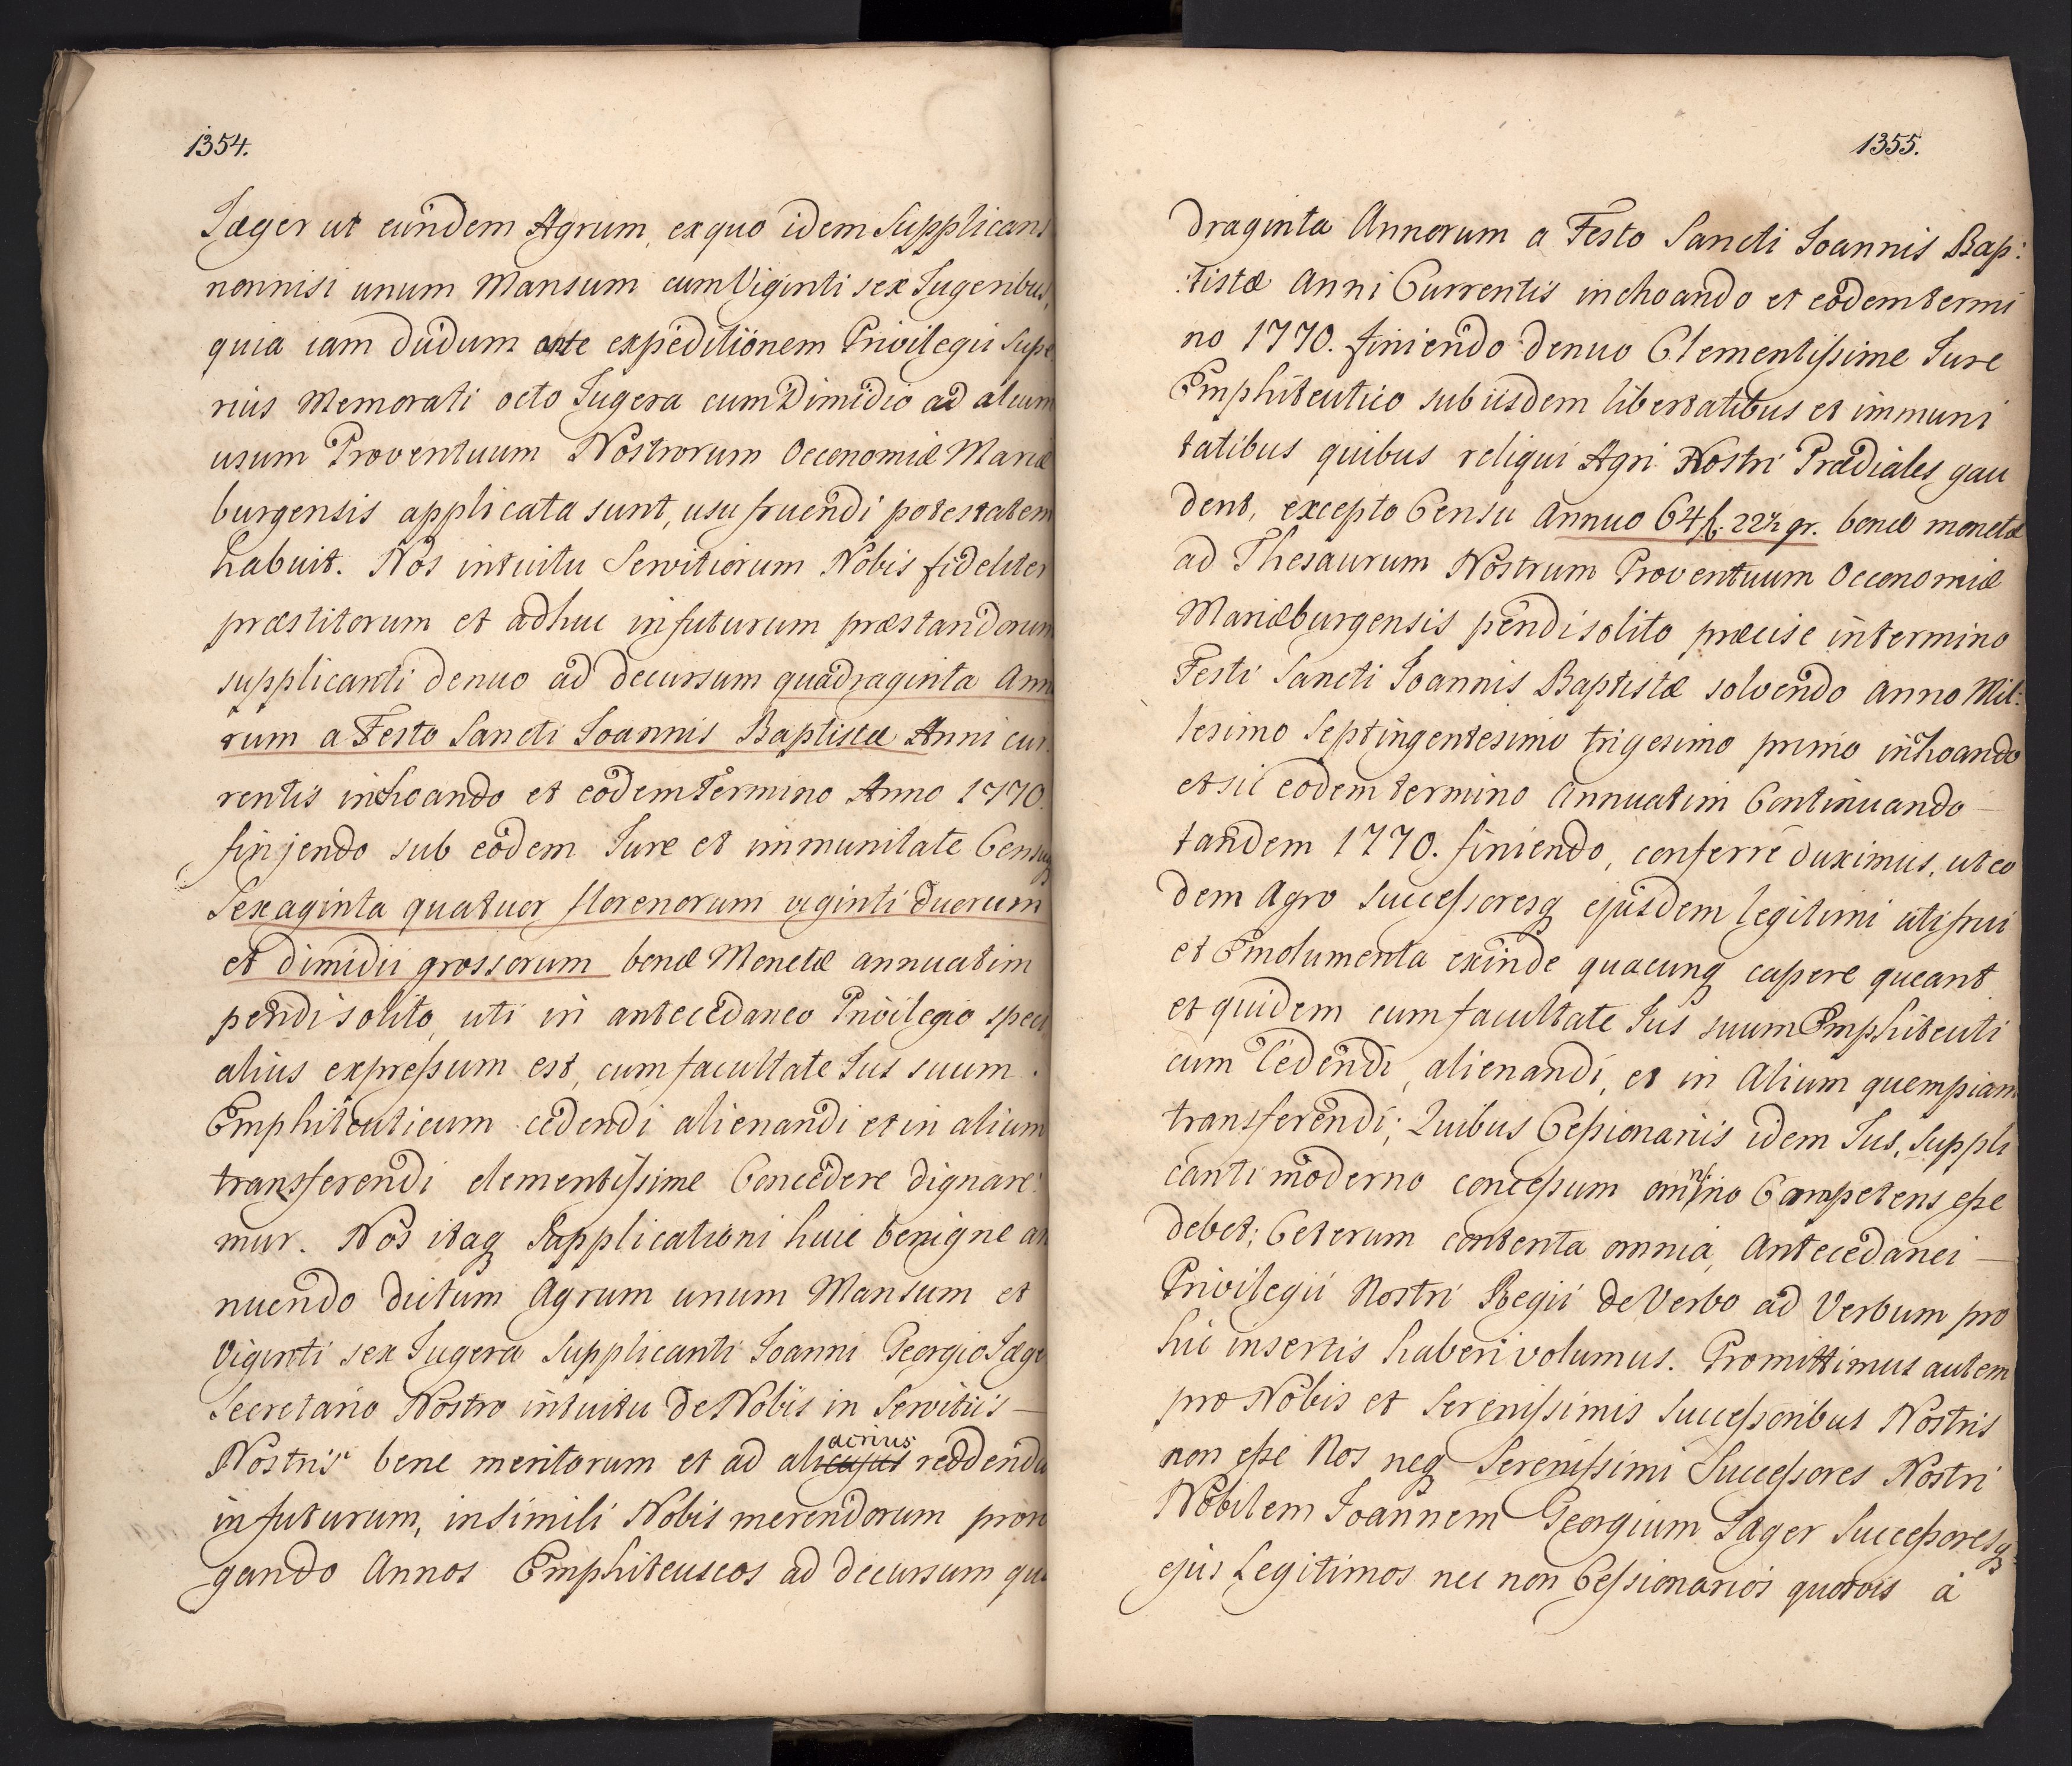 1354.
Jæger ut eundem Agrum, ex quo idem Supplicans
nonnisi unum Mansum cum Viginti sex Jugeribus,
quia iam dudum ante expeditionem Privilegii Supe
rius Memorati octo Jugera cum Dimidio ad alium
usum Proventuum Nostrorum Oeconomiæ Mariæ
burgensis applicata sunt, usu fruendi potestatem
habuit. Nos intuitu Servitiorum Nobis fideliter
præstitorum et adhuc in futurum præstandorum
supplicanti denuo ad decursum quadraginta Anno
rum a Festo Sancti Joannis Baptistæ Anni cur
rentis inchoando et eodem termino Anno 1770.
finjendo sub eodem Jure et immunitate Censuq
Sexaginta quatuor florenorum viginti Duorum
et dimidii grossorum bonæ Monetæ annuatim
pendi solito, uti in antecedaneo Privilegio speci
alius expressum est, cum facultate Jus suum
Emphiteuticum cedendi alienandi et in alium
transferendi clementissime Concedere dignare:
mur. Nos itaq Supplicationi huic benigne an
nuendo dictum Agrum unum Mansum et
Viginti sex Jugera Supplicanti Joanni Georgio Jæge
Secretario Nostro intuitu de Nobis in Servitiis
Nostris bene meritorum et ad alacrius reddendu
in futurum, in simili Nobis merendorum pron
gando Annos Emphiteuseos ad decursum qua
1355.
draginta Annorum a Festo Sancti Joannis Bap:
:tistæ Anni Currentis inchoando et eodem termi
no 1770. finiendo denuo Clementissime Jure
Emphiteutico sub iisdem libertatibus et immuni
tatibus quibus reliqui Agri Nostri Prædiales gau
dent, excepto Censu Annuo 64 f. 22½ gr. bonæ monetæ
ad Thesaurum Nostrum Proventuum Oeconomiæ
Mariæburgensis pendi solito præcise in termino
Festi Sancti Joannis Baptistæ solvendo Anno Mil:
lesimo Septingentesimo trigesimo primo inchoando
et sic eodem termino Annuatim Continuando
tandem 1770. finiendo, conferre duximus, ut eo
dem Agro Successoresq ejusdem legitimi uti frui
et Emolumenta exinde quacunq capere queant
et quidem cum facultate Jus suum Emphiteuti
cum Cedendi, alienandi, et in Alium quempiam
transferendi; Quibus Cessionariis idem Jus, Suppli
canti moderno concessum omnino Competens esse
debet; Ceterum contenta omnia, Antecedanei
Privilegii Nostri Regii de Verbo ad Verbum pro
hic insertis haberi volumus. Promittimus autem
pro Nobis et Serenissimis Successoribus Nostris
non esse Nos neq Serenissimi Successores Nostri
Nobilem Joannem Georgium Jæger Successoresq
ejus Legitimos nec non Cessionarios quosvis à